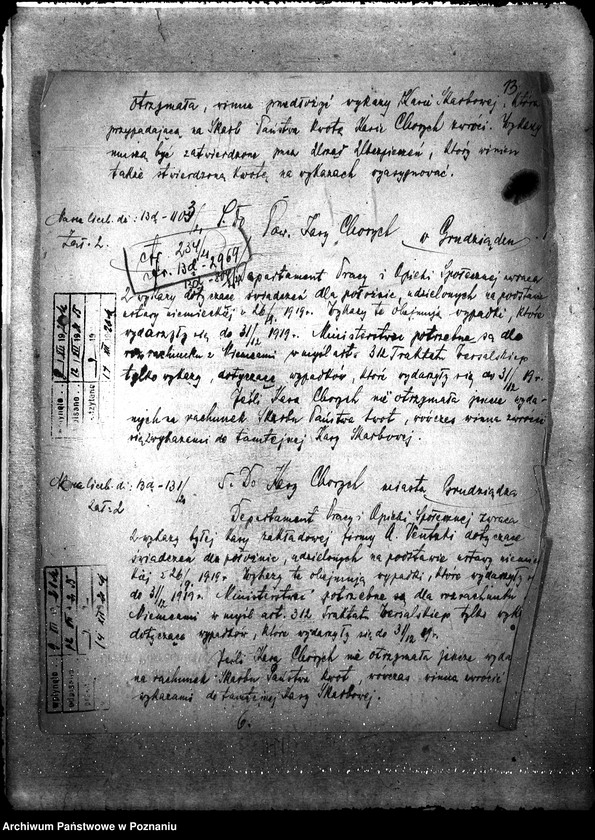 13
otrzymała, winna przedłożyć wykazy Kasie Skarbowej, która
przypadającą na Skarb Państwa kwotę Kasie Chorych zwróci. Wykazy
muszą być zatwierdzone przez Urząd Ubezpieczeń, który winien
także stwierdzoną kwotę na wykazach wyasygnować.
Na nr liczb. dz: 13d-1103/4
Zał. 2.
5. Do Pow. Kasy Chorych w Grudziądzu
13d-2969
Departament Pracy i Opieki Społecznej zwraca
2 wykazy dotyczące świadczeń dla położnic, udzielonych na podstawie
ustawy niemieckiej z 26/9. 1919. Wykazy te obejmują wypadki, które
wydarzyły się do 31/12 1919. Ministerstwu potrzebne są dla
rozrachunku z Niemcami w myśl art. 312 Traktatu Wersalskiego
tylko wykazy, dotyczące wypadków, które wydarzyły się do 31/12 19.
Jeśli Kasa Chorych nie otrzymała jeszcze wyda-
nych na rachunek Skarbu Państwa kwot, wówczas winna zwrócić
się z wykazami do tamtejszej Kasy Skarbowej.
Na nr liczb. dz: 13d-131/4
Zał: 2
5. Do Kasy Chorych miasta Grudziądza
Departament Pracy i Opieki Społecznej zwraca
2 wykazy byłej Kasy zakładowej firmy A. Ventzki dotyczące
świadczeń dla położnic, udzielonych na podstawie ustawy niemiec-
kiej z 26/9. 1919. Wykazy te obejmują wypadki, które wydarzyły
do 31/12 1919. Ministerstwu potrzebne są dla rozrachunku
Niemcami w myśl art. 312 Traktatu Wersalskiego tylko wyka
dotyczące wypadków, które wydarzyły się do 31/12 19.
Jeśli Kasa Chorych nie otrzymała jeszcze wyda
na rachunek Skarbu Państwa kwot, wówczas winna zwrócić
wykazami do tamtejszej Kasy Skarbowej.
6.
Archiwum Państwowe w Poznaniu
szukajwarchiwach.pl